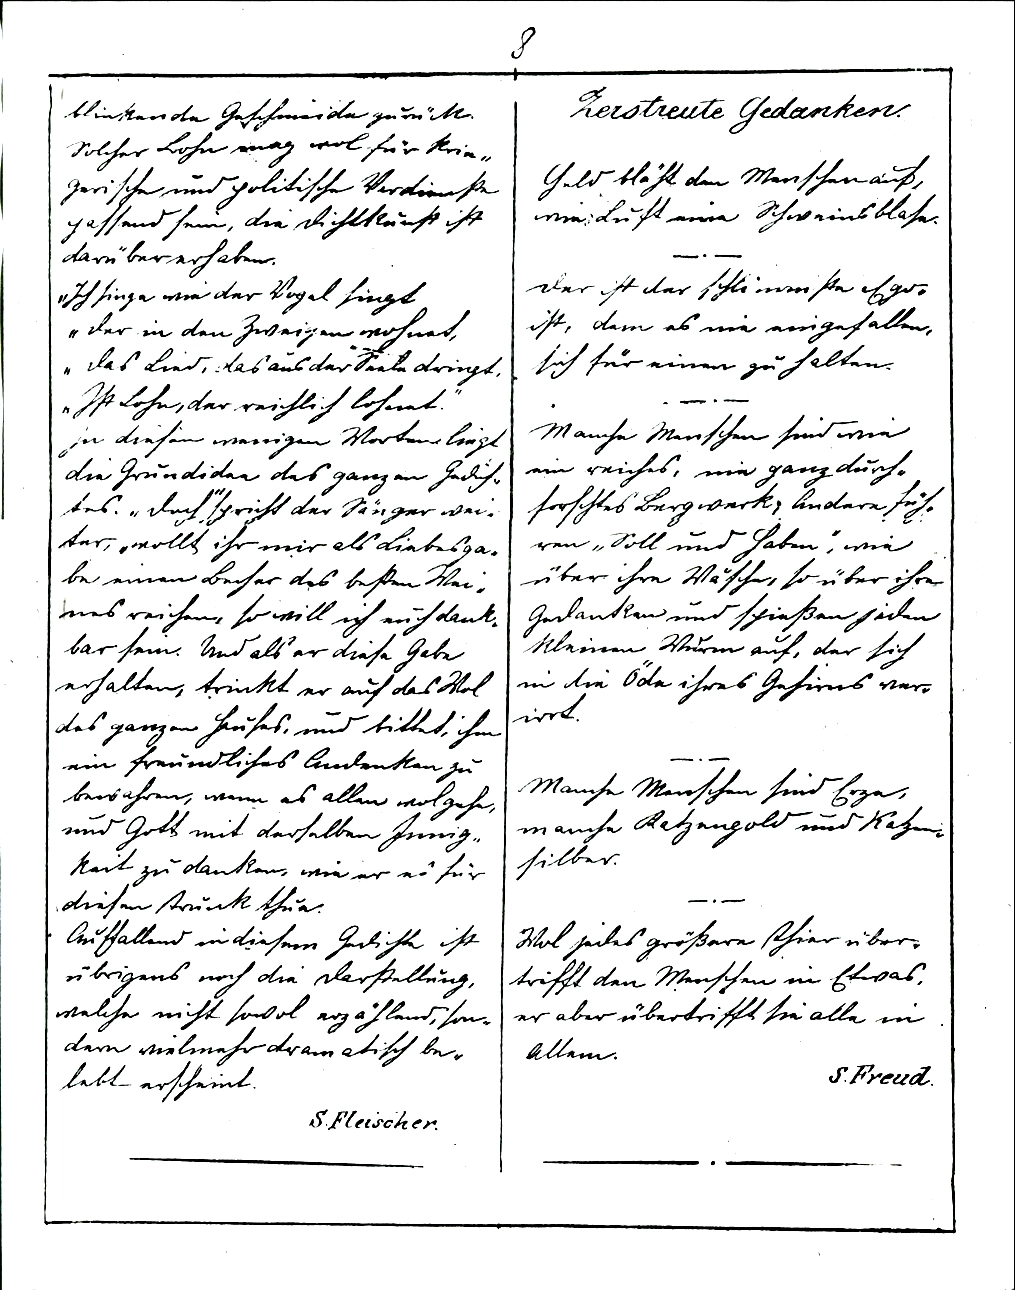 8
blinkende Geschmeide zurück.
Solcher Lohn mag wol für krie„
gerische und politische Verdienste
passend sein, die Dichtkunst ist
darüber erhaben.
„Ich singe wie der Vogel singt
„Der in den Zweigen wohnet,
„Das Lied, das aus der Seele dringt,
„Ist Lohn, der reichlich lohnet."
In diesen wenigen Worten liegt
die Grundidee des ganzen Gedich„
tes. „Doch" spricht der Sänger wei„
ter, „wollt ihr mir als Liebesga„
be einen Becher des besten Wei„
nes reichen, so will ich euch dank„
bar sein. Und als er diese Gabe
erhalten, trinkt er auf das Wol
des ganzen Hauses, und bittet, ihm
ein freundliches Andenken zu
bewahren, wenn es allen wolgehe,
und Gott mit derselben Innig„
keit zu danken, wie er es für
diesen Trunk thue.
Auffallend in diesem Gedichte ist
übrigens noch die Darstellung,
welche nicht sowol erzählend, son„
dern vielmehr dramatisch be„
lebt erscheint.
S. Fleischer.
Zerstreute Gedanken.
Geld bläht den Menschen auf,
wie Luft eine Schweinsblase.
Der ist der schlimmste Ego„
ist, dem es nie eingefallen,
sich für einen zu halten.
Manche Menschen sind wie
ein reiches, nie ganz durch„
forschtes Bergwerk; Andere füh„
ren „Soll und Haben", wie
über ihre Wäsche, so über ihre
Gedanken und spießen jeden
kleinen Wurm auf, der sich
in die Öde ihres Gehirns ver„
irrt.
Manche Menschen sind Erze,
manche Katzengold und Katzen„
silber.
Wol jedes größere Thier über„
trifft den Menschen in Etwas,
er aber übertrifft sie alle in
Allem.
S. Freud.